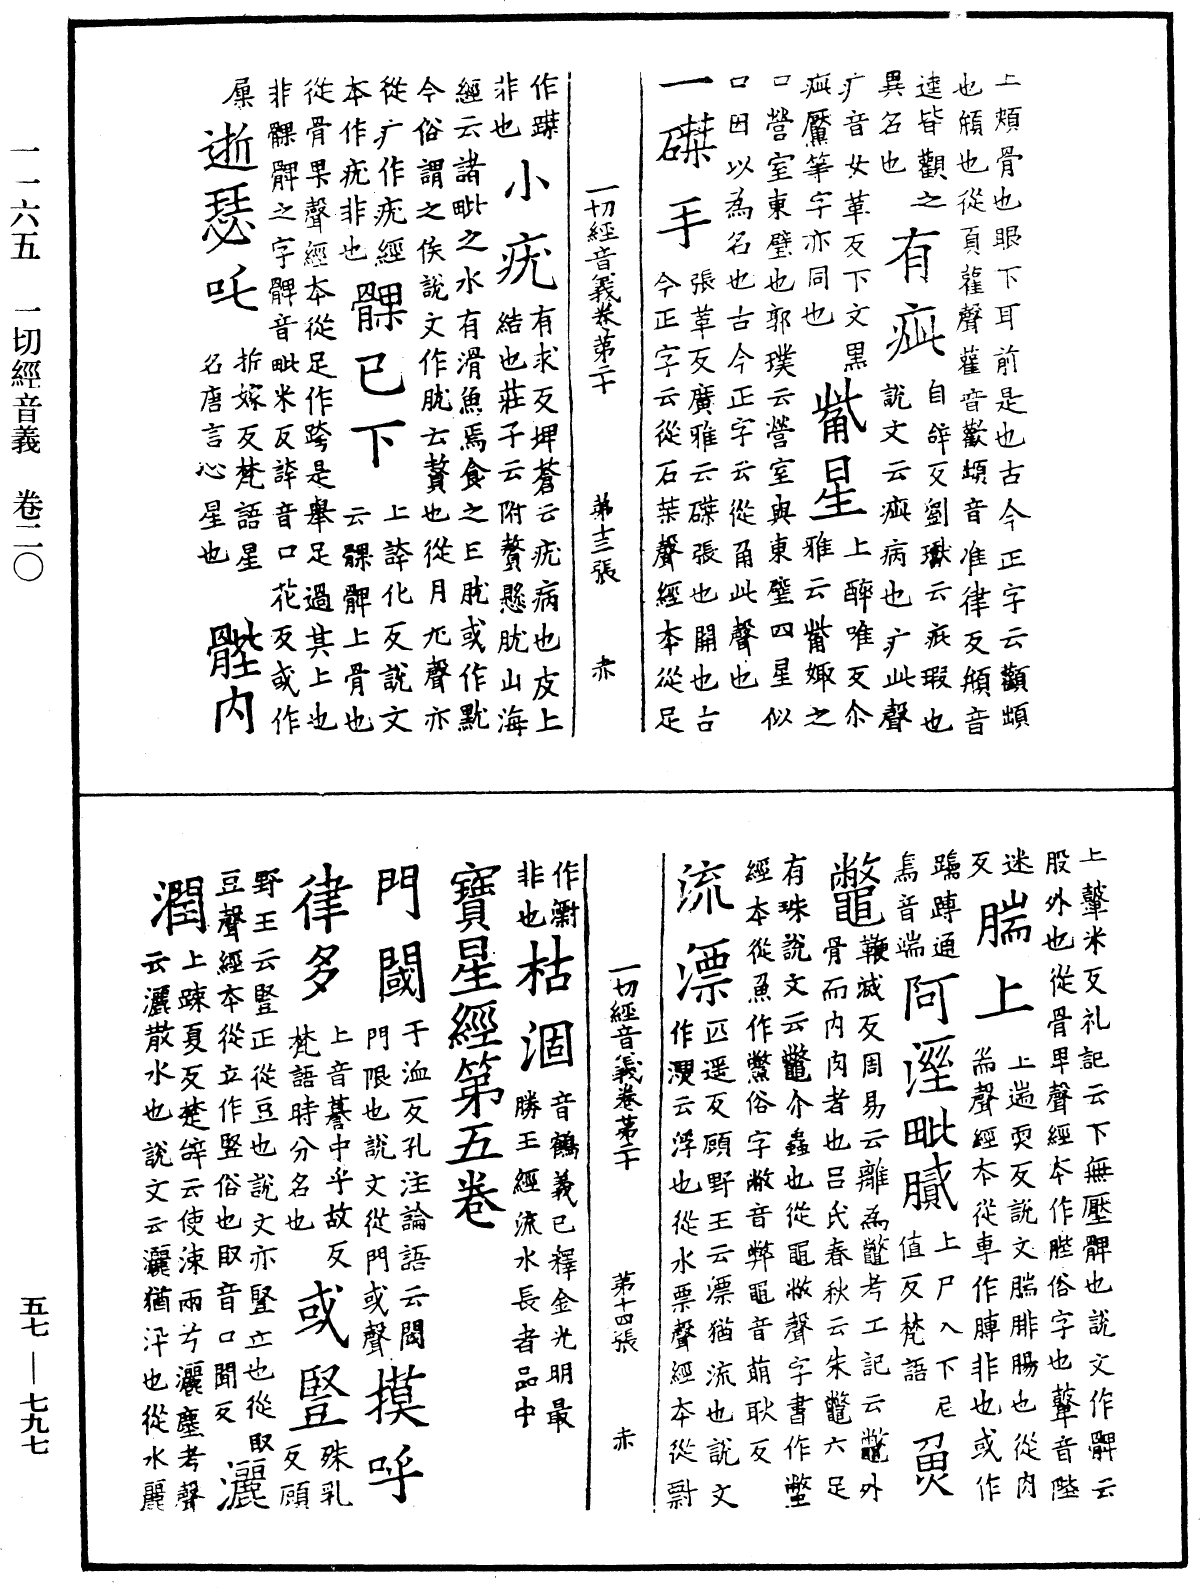 一一六五　一切經音義　卷二〇
五七—七九七
上頰骨也眼下耳前是也古今正字云顴䪼
也頄也從頁雚聲雚音歡䪼音准律反頄音
逵皆觀之
有疵
自辝反劉瓛云疵瑕也
異名也
說文云疵病也疒此聲
疒音女革反下文黑
疵黶等字亦同也
觜星
上醉唯反尒
雅云觜娵之
口營室東壁也郭璞云營室與東壁四星似
口因以為名也古今正字云從角此聲也
一磔手
張革反廣雅云磔張也開也古
今正字云從石桀聲經本從足
一切經音義卷第二十　第十三張　赤
作蹀
非也
小疣
有求反埤蒼云疣病也皮上
結也莊子云附贅懸肬山海
經云諸毗之水有滑魚焉食之已肬或作黕
今俗謂之侯說文作肬云贅也從月尤聲亦
從疒作疣經
本作疣非也
髁已下
上誇化反說文
云髁髀上骨也
從骨果聲經本從足作跨是舉足過其上也
非髁髀之字髀音毗米反誇音口花反或作
𡱼
逝瑟吒
折嫁反梵語星
名唐言心星也
䏶內
上鞞米反礼記云下無壓髀也說文作髀云
股外也從骨卑聲經本作䏶俗字也鞞音陛
迷
反
腨上
上遄耎反說文腨腓腸也從肉
耑聲經本從専作膞非也或作
䠾蹲通
為音端
阿溼毗膩
上尸入下尼
值反梵語
鼈
鞭滅反周易云離為鼈考工記云鼈外
骨而內肉者也吕氏春秋云朱鼈六足
有珠說文云鼈介蟲也從黽敝聲字書作鱉
經本從魚作鱉俗字敝音弊黽音萌耿反
流漂
匹遥反顧野王云漂猶流也說文
作㵱云浮也從水票聲經本從㷉
一切經音義卷第二十　第十四張　赤
作㶡
非也
枯涸
音鶴義已釋金光明最
勝王經流水長者品中
寶星經第五卷
門閾
于洫反孔注論語云閾
門限也說文從門或聲
摸呼
律多
上音謩中乎故反
梵語時分名也
或豎
殊乳
反顧
野王云豎正從豆也說文亦豎立也從臤
豆聲經本從立作竪俗也臤音口閑反
灑
潤
上踈夏反楚辝云使涷雨兮灑塵考聲
云灑散水也說文云灑猶汛也從水麗